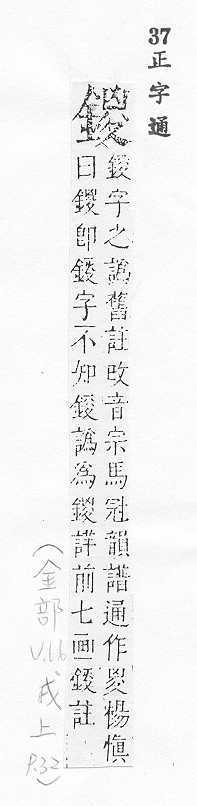 37正字通
鍐
鋄字之譌舊註改音宗馬冠韻譜通作㚇楊慎
曰鍐即鋄字不知鋄譌為鍐詳前七画鋄註
(金部 V.16 戌上 P.32)